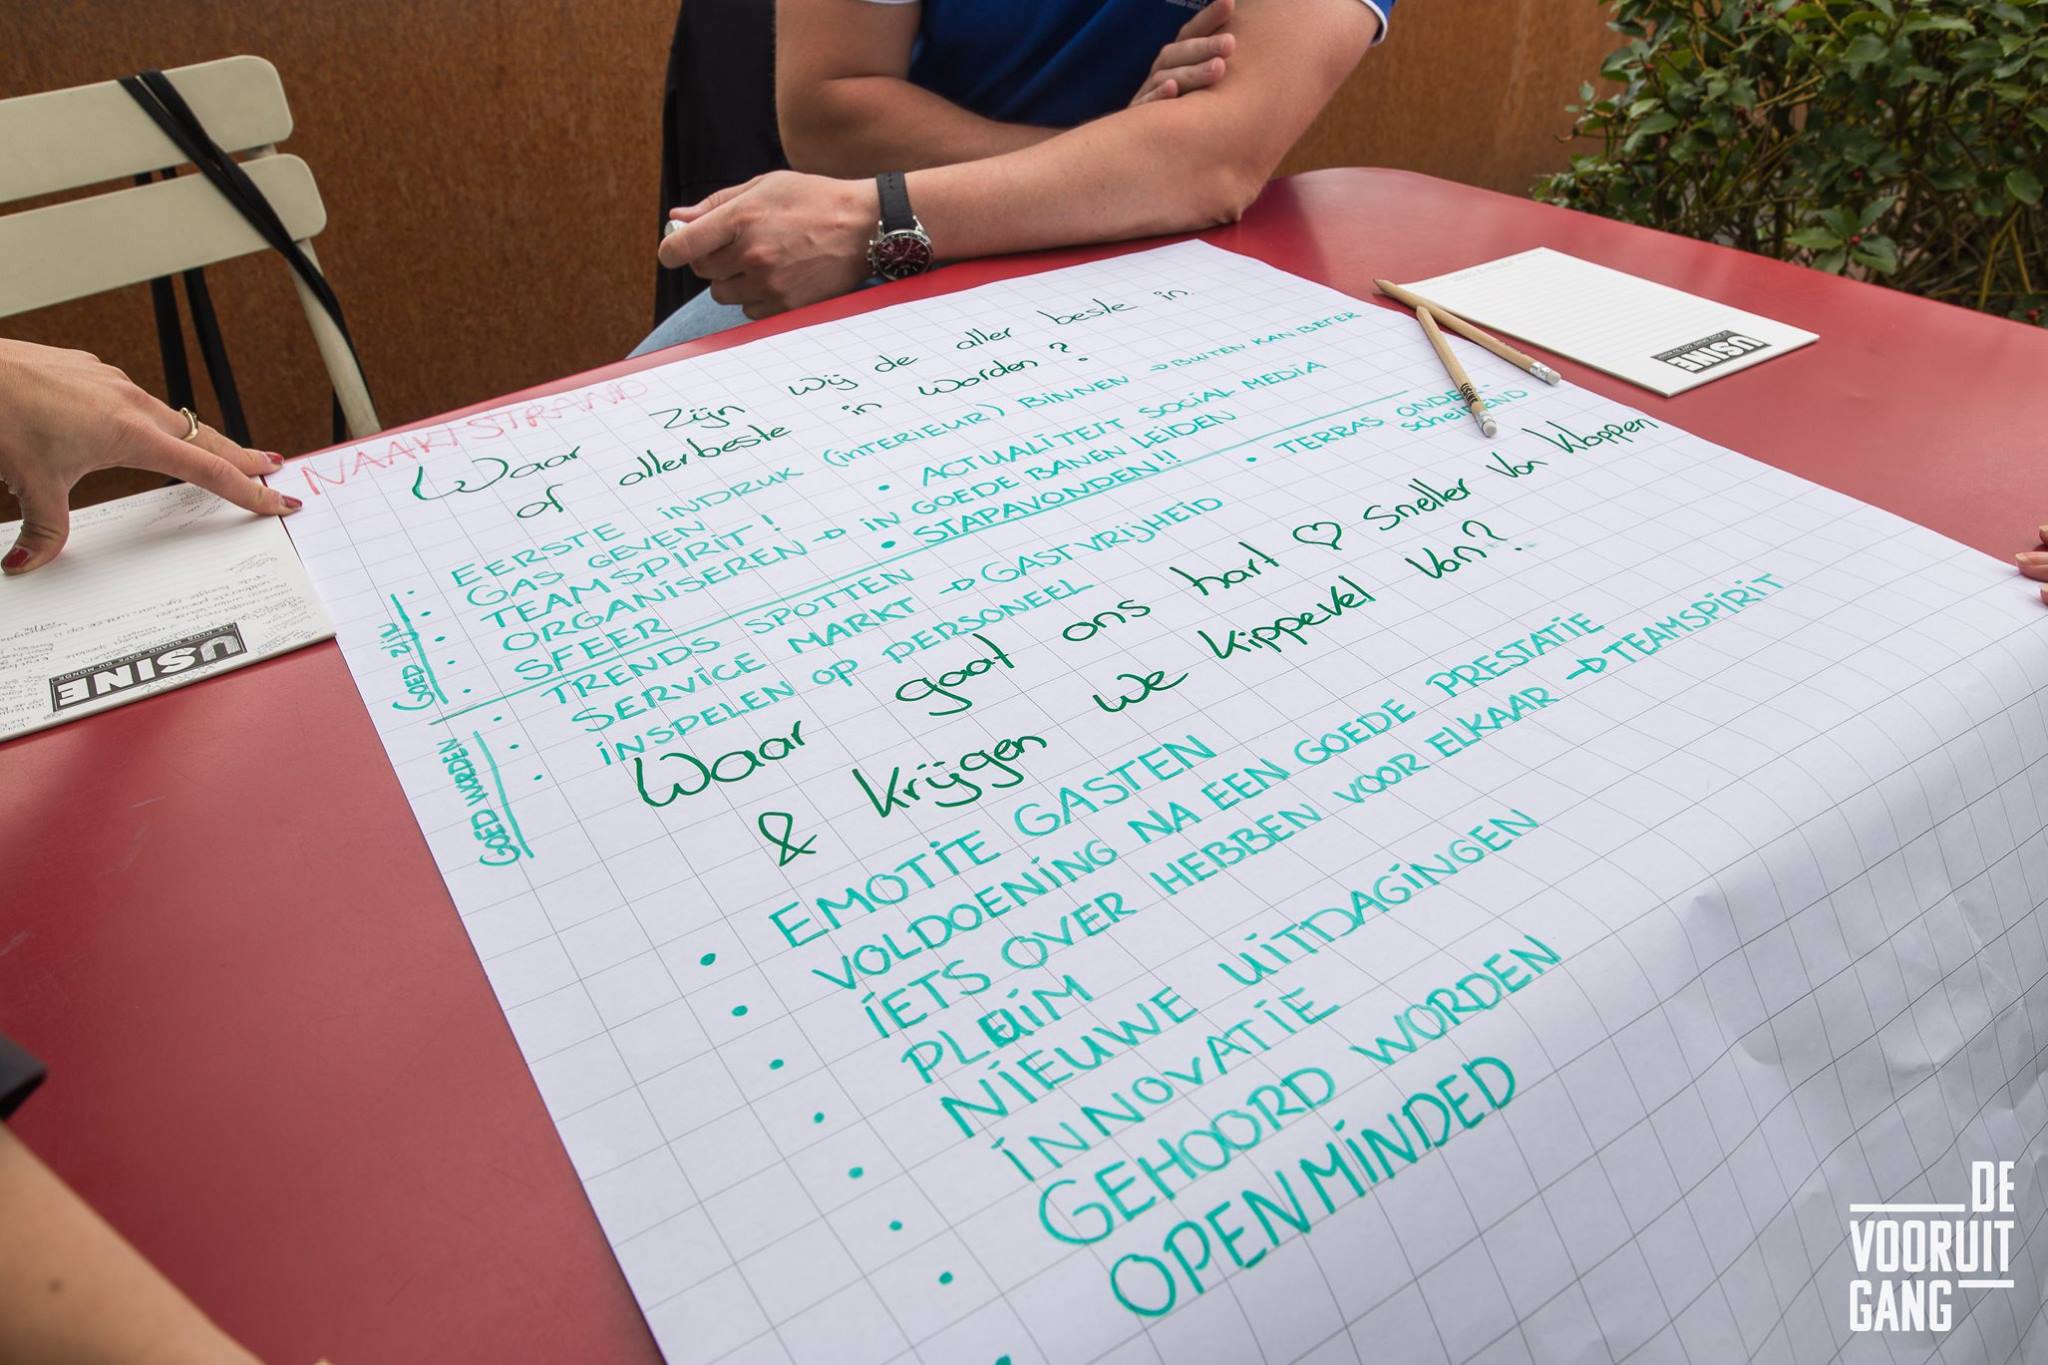 NAAKTSTRAND
Waar zijn wij de aller beste in
of allerbeste in worden?
GOED ZIJN
• EERSTE INDRUK (INTERIEUR) BINNEN → BUITEN KAN BETER
• GAS GEVEN
• ACTUALITEIT SOCIAL MEDIA
• TEAMSPIRIT!
• ORGANISEREN → IN GOEDE BANEN LEIDEN
• SFEER
• STAPAVONDEN!!
GOED WORDEN
• TRENDS SPOTTEN
• TERRAS ONDER-
scheidend
• SERVICE MARKT → GASTVRIJHEID
• INSPELEN OP PERSONEEL
Waar gaat ons hart ♡ sneller van kloppen
& krijgen we kippevel van?
• EMOTIE GASTEN
• VOLDOENING NA EEN GOEDE PRESTATIE
• IETS OVER HEBBEN VOOR ELKAAR → TEAMSPIRIT
• PLUIM
• NIEUWE UITDAGINGEN
• INNOVATIE
• GEHOORD WORDEN
• OPENMINDED
USINE
GRAND CAFE DU MONDE
USINE
USINE
DE
VOORUIT
GANG